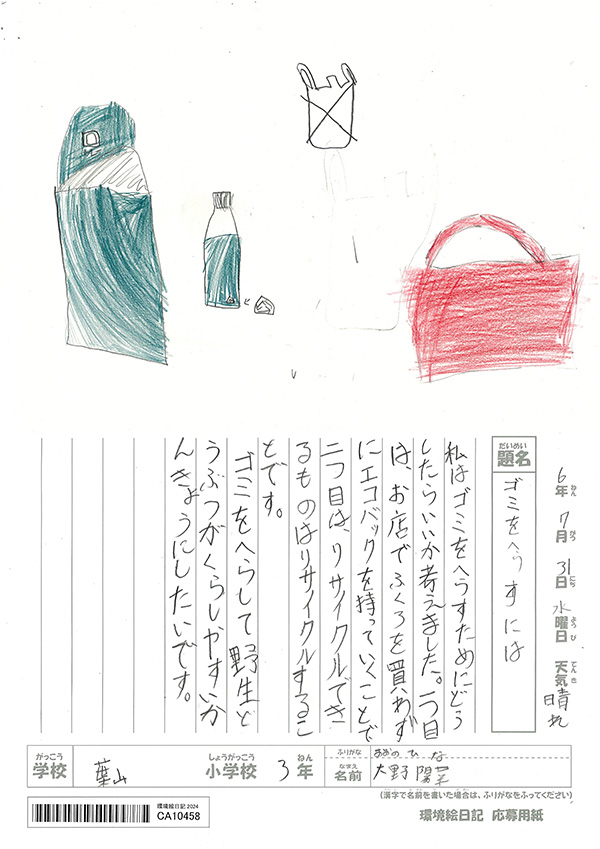 6年 7月 31日 水曜日 天気 晴れ
ねん がつ にち ようび てんき
だいめい
題名 ゴミをへらすには
私はゴミをへらすためにどう
したらいいか考えました。一つ目
は、お店でふくろを買わず
にエコバックを持っていくことで
二つ目は、リサイクルでき
るものはリサイクルするこ
とです。
ゴミをへらして野生ど
うぶつがくらしやすいか
んきょうにしたいです。
がっこう しょうがっこう ねん ふりがな おおの ひな
学校 葉山 小学校 3年 なまえ 名前 大野 陽菜
(漢字で名前を書いた場合は、ふりがなをふってください)
環境絵日記 2024
CA10458
環境絵日記 応募用紙